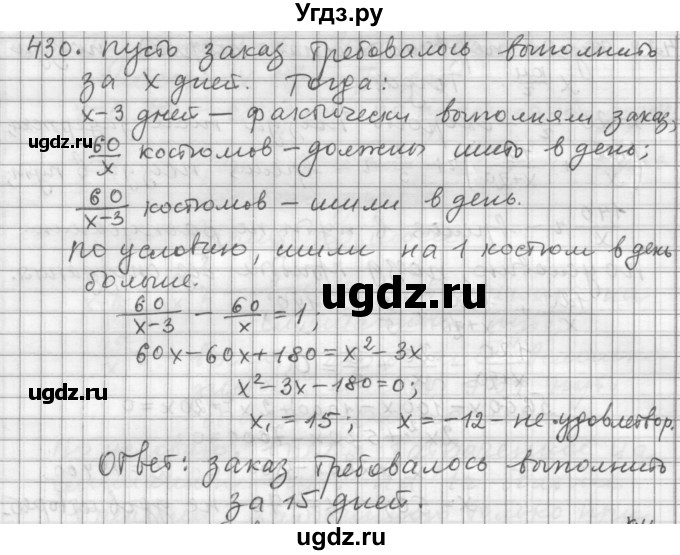 Угдз.ру
430. Пусть заказ требовалось выполнить
за x дней. Тогда:
x-3 дней — фактически выполняли заказ;
60/x костюмов - должны шить в день;
60/(x-3) костюмов - шили в день.
По условию, шили на 1 костюм в день
больше.
60/(x-3) - 60/x = 1;
60x-60x+180=x²-3x
x²-3x-180=0;
x₁=15; x=-12- не удовлетвор.
Ответ: заказ требовалось выполнить
за 15 дней.
ugdz.ru
ugdz.ru
ugdz.ru
ugdz.ru
ugdz.ru
ugdz.ru